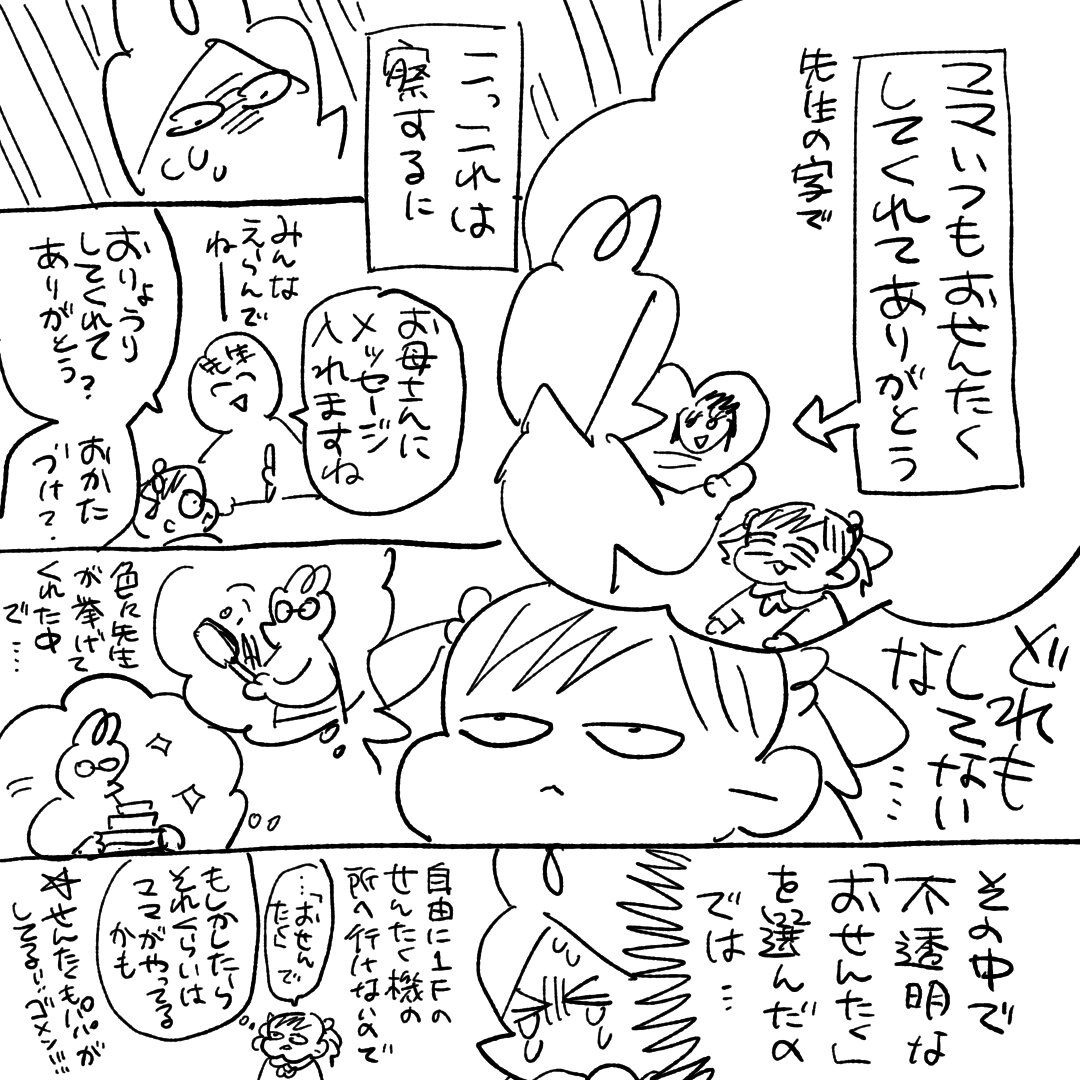 ママいつもおせんたく
してくれてありがとう
先生の字で
こっこれは
察するに
お母さんに
メッセージ
入れますね
みんな
えらんで
ねー
先生
おりょうり
してくれて?
ありがとう
おかた
づけ?
色々先生
が挙げて
くれた中
で……
どれも
してない
な……
その中で
不透明な
「おせんたく」
を選んだの
では…
自由に1Fの
せんたく機の
所へ行けないので
…「おせん
たく」で
もしかしたら
それくらいは
ママがやってる
かも
☆せんたくもパパが
してる!!ゴメン!!!